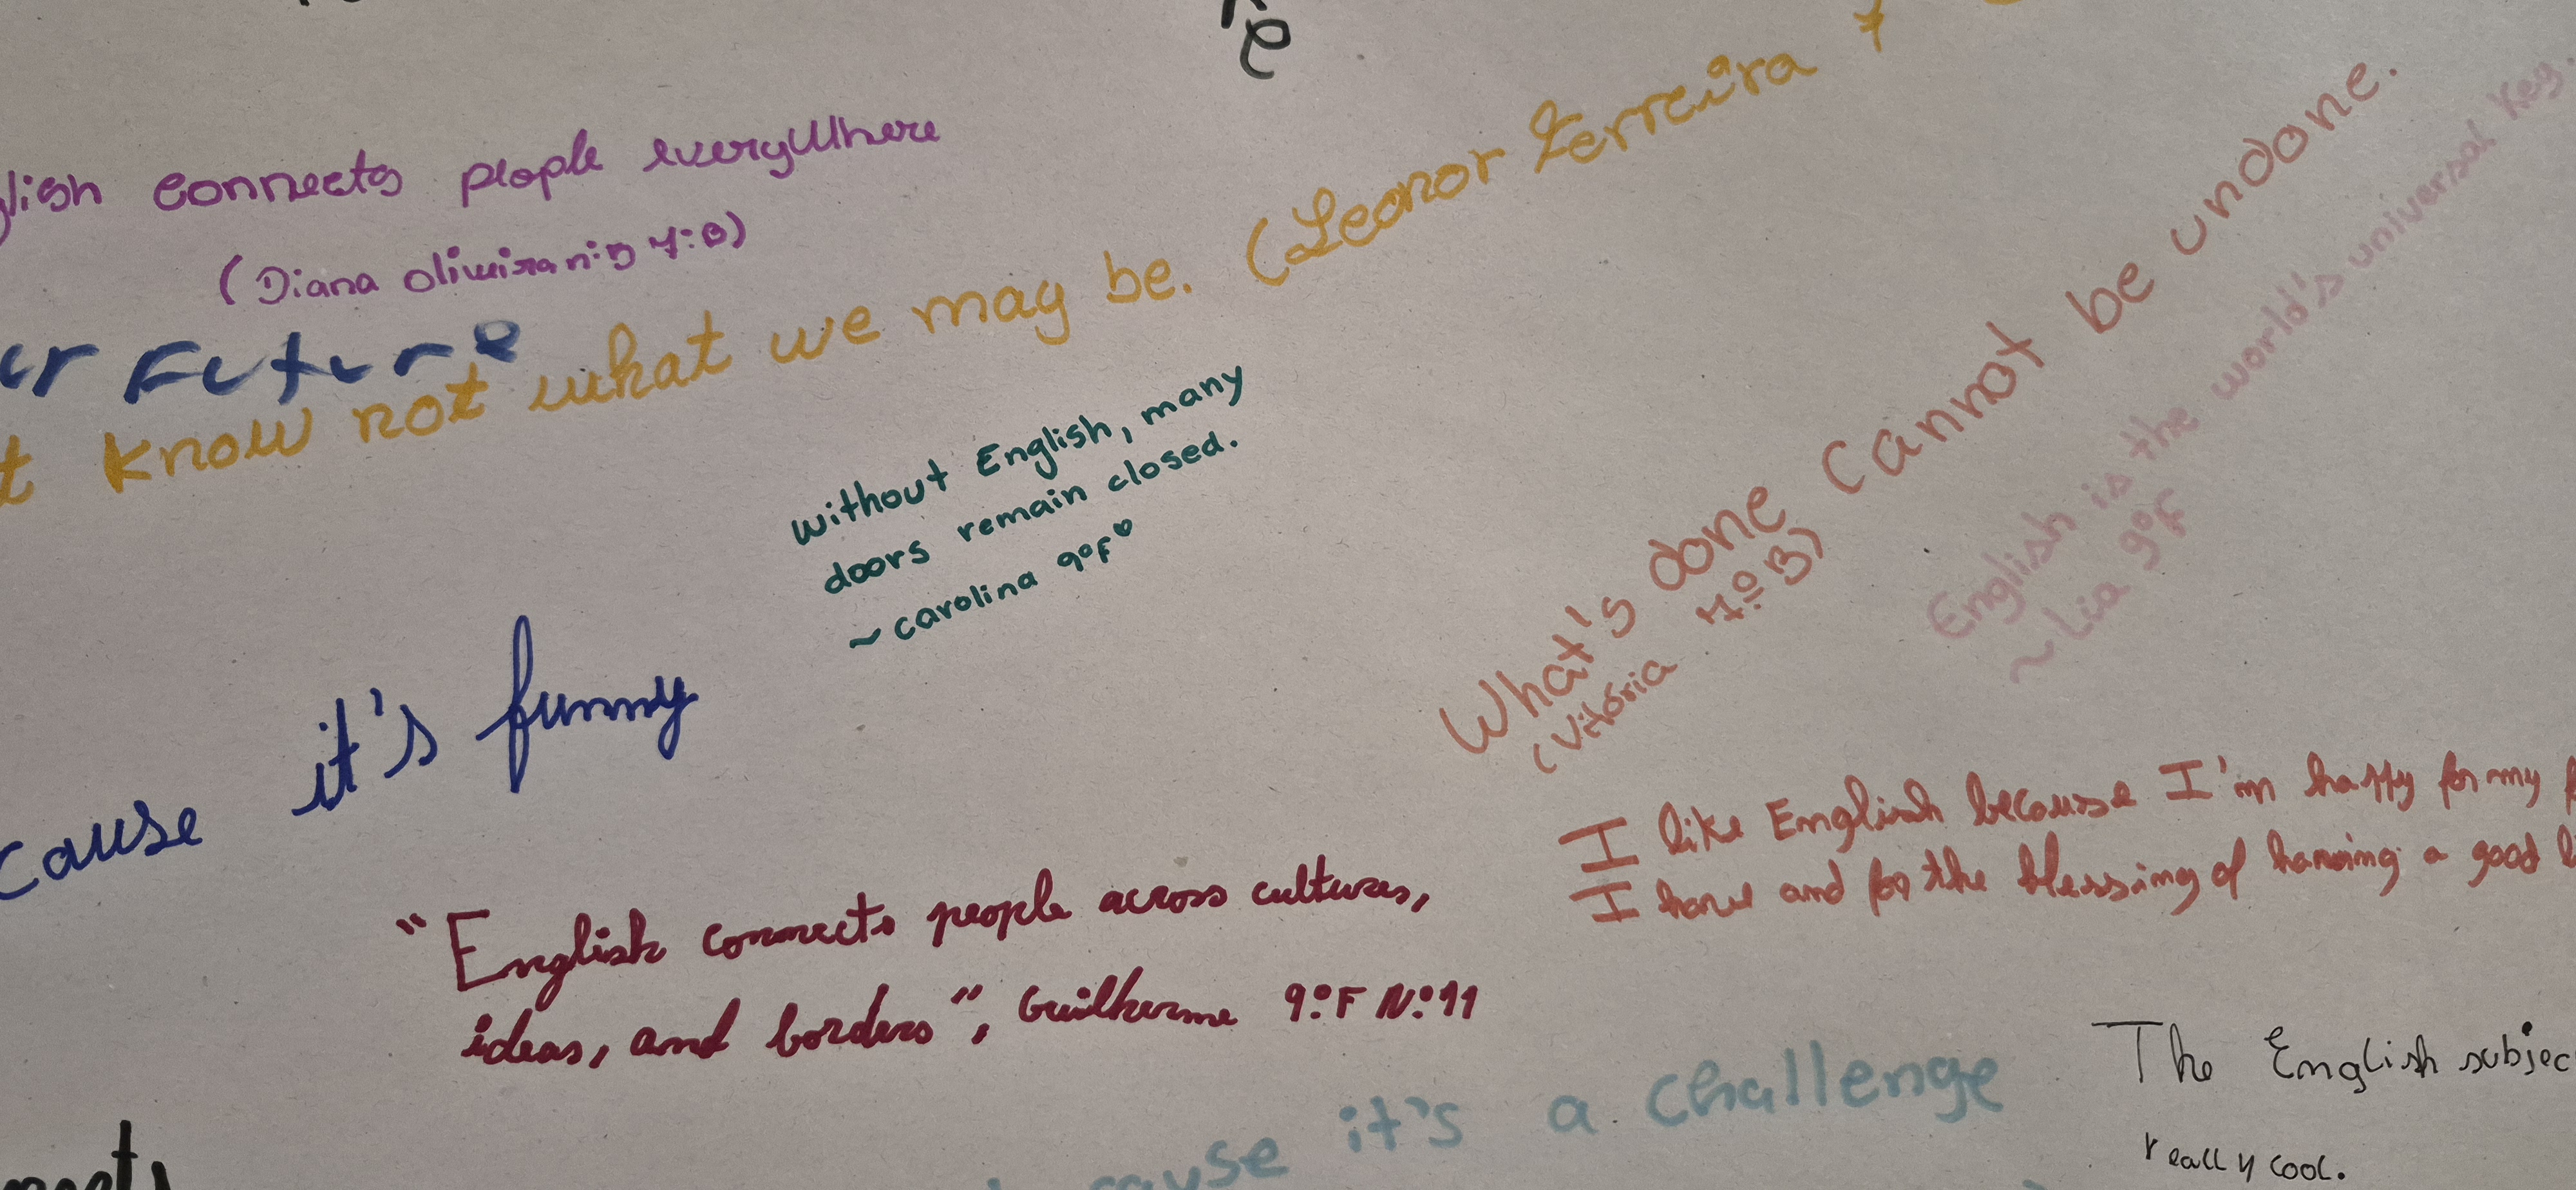 glish connects people everywhere
(Diana Oliveira n:5 7:B)
ur Future
t know not what we may be. (Leonor Ferreira 7
without English, many
doors remain closed.
~ carolina 9ºF ♥
What's done cannot be undone.
(Vitória 7º B)
English is the world's universal key.
~ Lia 9ºF
cause it's funny
I like English because I'm happy for my
I have and for the blessing of having a good
"English connects people across cultures,
ideas, and borders", Guilherme 9ºF Nº11
cause it's a challenge
The English subjec
really cool.